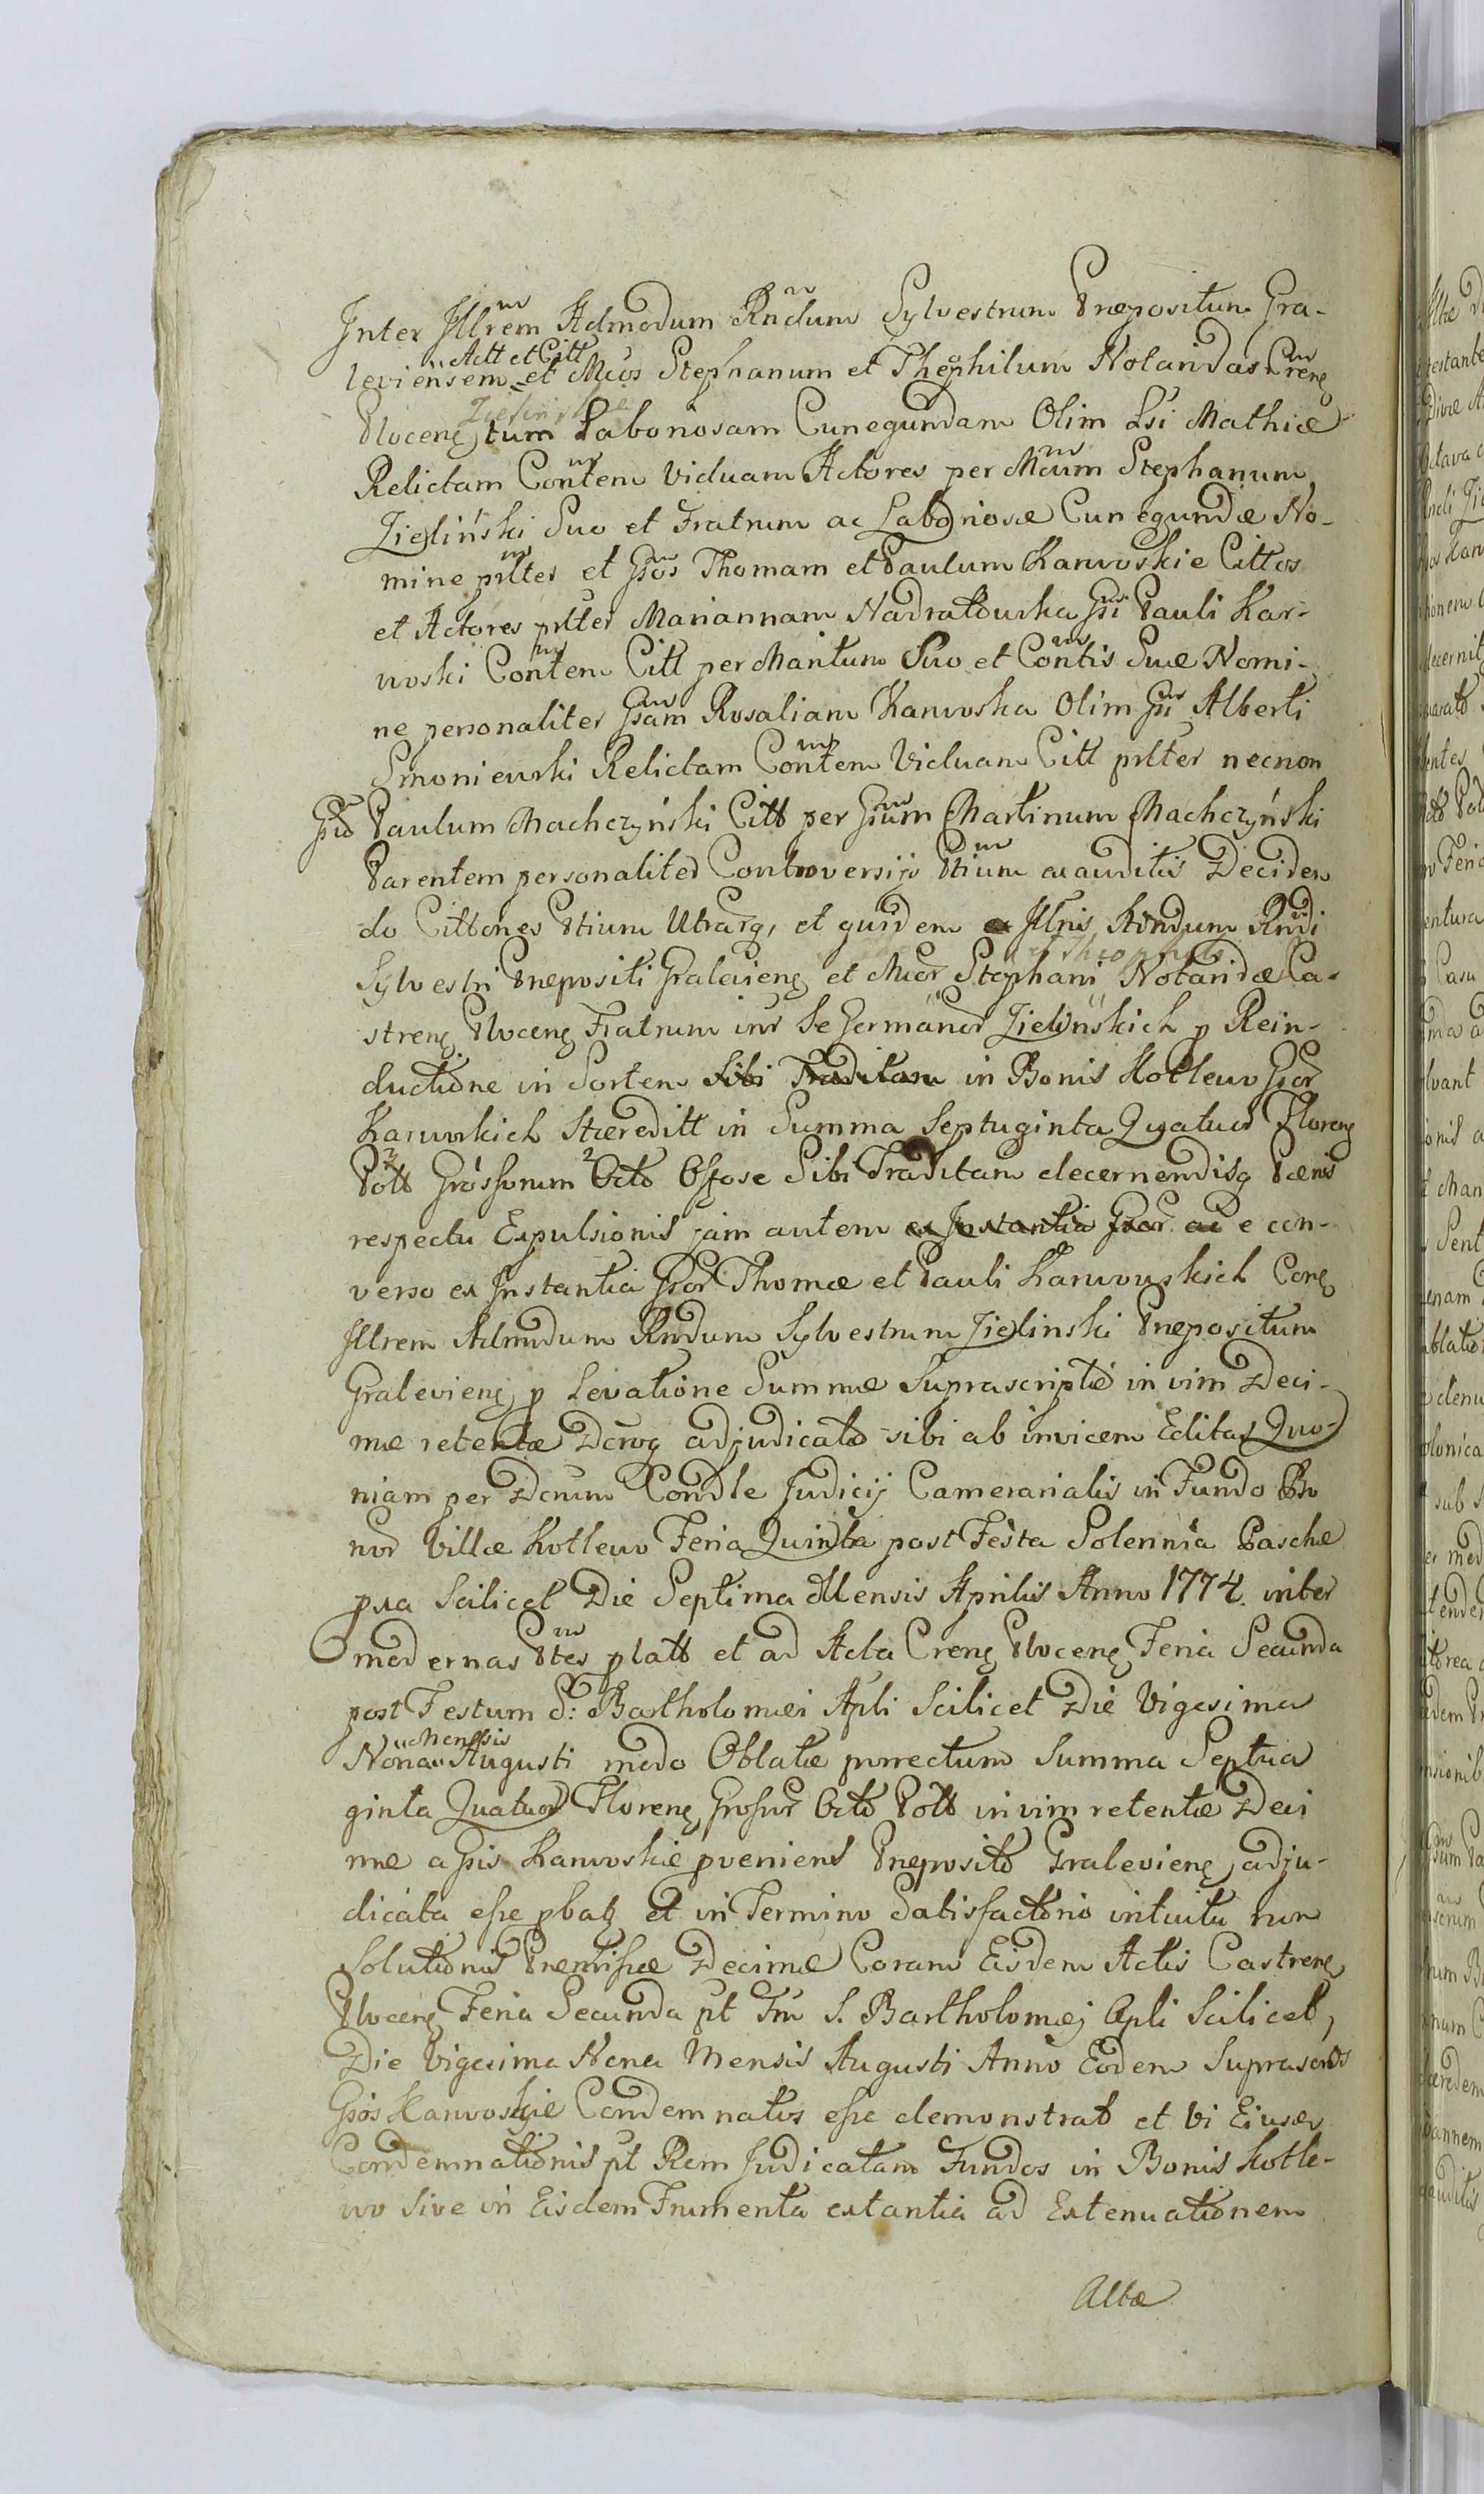 Inter Illrem Admodum Rndum Sylvestrum Præpositum Gra-
Actt et Citt
leviensem et Mcos Stephanum et Theophilum Notandas Creng
Zielinskie
Ploceng tum Laboriosam Cunegundam Olim Lsi Mathiæ
Relictam Contem Viduam Actores per Mcum Stephanum
Zieliński Suo et Fratrum ac Laboriosæ Cunegundæ No-
mine prlter et Gsos Thomam et Paulum Karwoskie Cittos
et Actores prlter Mariannam Nadratowska Gsi Pauli Kar-
woski Contem Citt per Maritum Suo et Contis Suæ Nomi-
ne personaliter Gsam Rosaliam Karwoska Olim Gsi Alberti
Smoniewski Relictam Contem Viduam Citt prlter necnon
Gsu Paulum Machczyński Citt per Gsum Martinum Machczyński
Parentem personaliter Controversijs Ptium auditis Deciden
do Cittones Ptium Utrarq, et quidem Illris Admdum Rndi
et Theophili
Sylvestri Præpositi Graleving et Mcor Stephani Notaridæ Ca-
streng Ploceng Fratrum inr Se Germanor Zielinskich p Rein-
ductione in Sortem Sibi Traditam in Bonis Kotlewo Gsor
Karwskich Hæreditt in Summa Septuginta Quatuor Floreng
Poll Grossorum Octo Ossose Sibi Traditam decernendisq Pænis
respectu Expulsionis jam autem ex Instantia Gsor ac e con-
verso ex Instantia Gsor Thomæ et Pauli Karwowskich Cong
Illrem Admdum Rndum Sylvestrum Zielinski Præpositum
Gralevieng p Levatione Summæ Suprascriptæ in vim Deci-
mæ retentæ Dcroq adjudicato sibi ab invicem Editas Quo-
niam per Dcrum Condle Judicij Camerarialis in Fundo Bo
nor Villæ Kotlewo Feria Quinta post Festa Solennia Paschæ
pxa Scilicet Die Septima Mensis Aprilis Anno 1774. inter
modernas Ptes platt et ad Acta Creng Ploceng Feria Secunda
post Festum S: Bartholomæi Apli Scilicet Die Vigesima
Mensis
Nona Augusti modo Oblatæ porrectum Summa Septua
ginta Quatuor Floreng Grossor Octo Poll in vim retentæ Deci
mæ a Gsis Karwoskie proveniens Præposito Gralevieng adju-
dicata esse pbatq et in Termino Satisfactorio intuitu non
Solutionis Præmissæ Decimæ Coram Eisdem Actis Castreng
Ploceng Feria Secunda pt Fm S. Bartholomæj Apli Scilicet,
Die Vigesima Nona Mensis Augusti Anno Eodem Suprascrtos
Gsos Karwoskie Condemnatos esse demonstrat et Vi Ejusdem
Condemnationis pt Rem Judicatam Fundos in Bonis Kotle-
wo Sive in Eisdem Frumenta extantia ad Extenuationem
Altæ